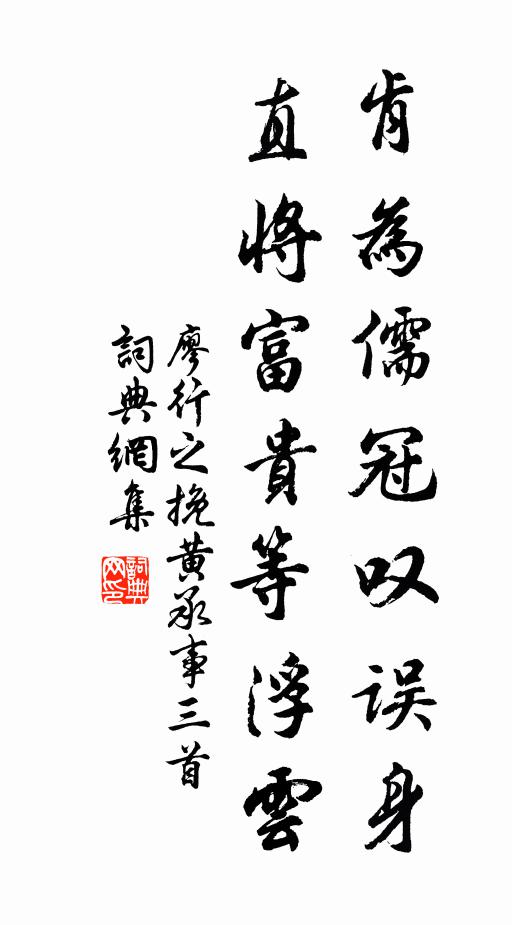 肯為儒冠叹误身
直將富貴等浮雲
廖行之挽黄承事三首
詞典網集
詞典
网印